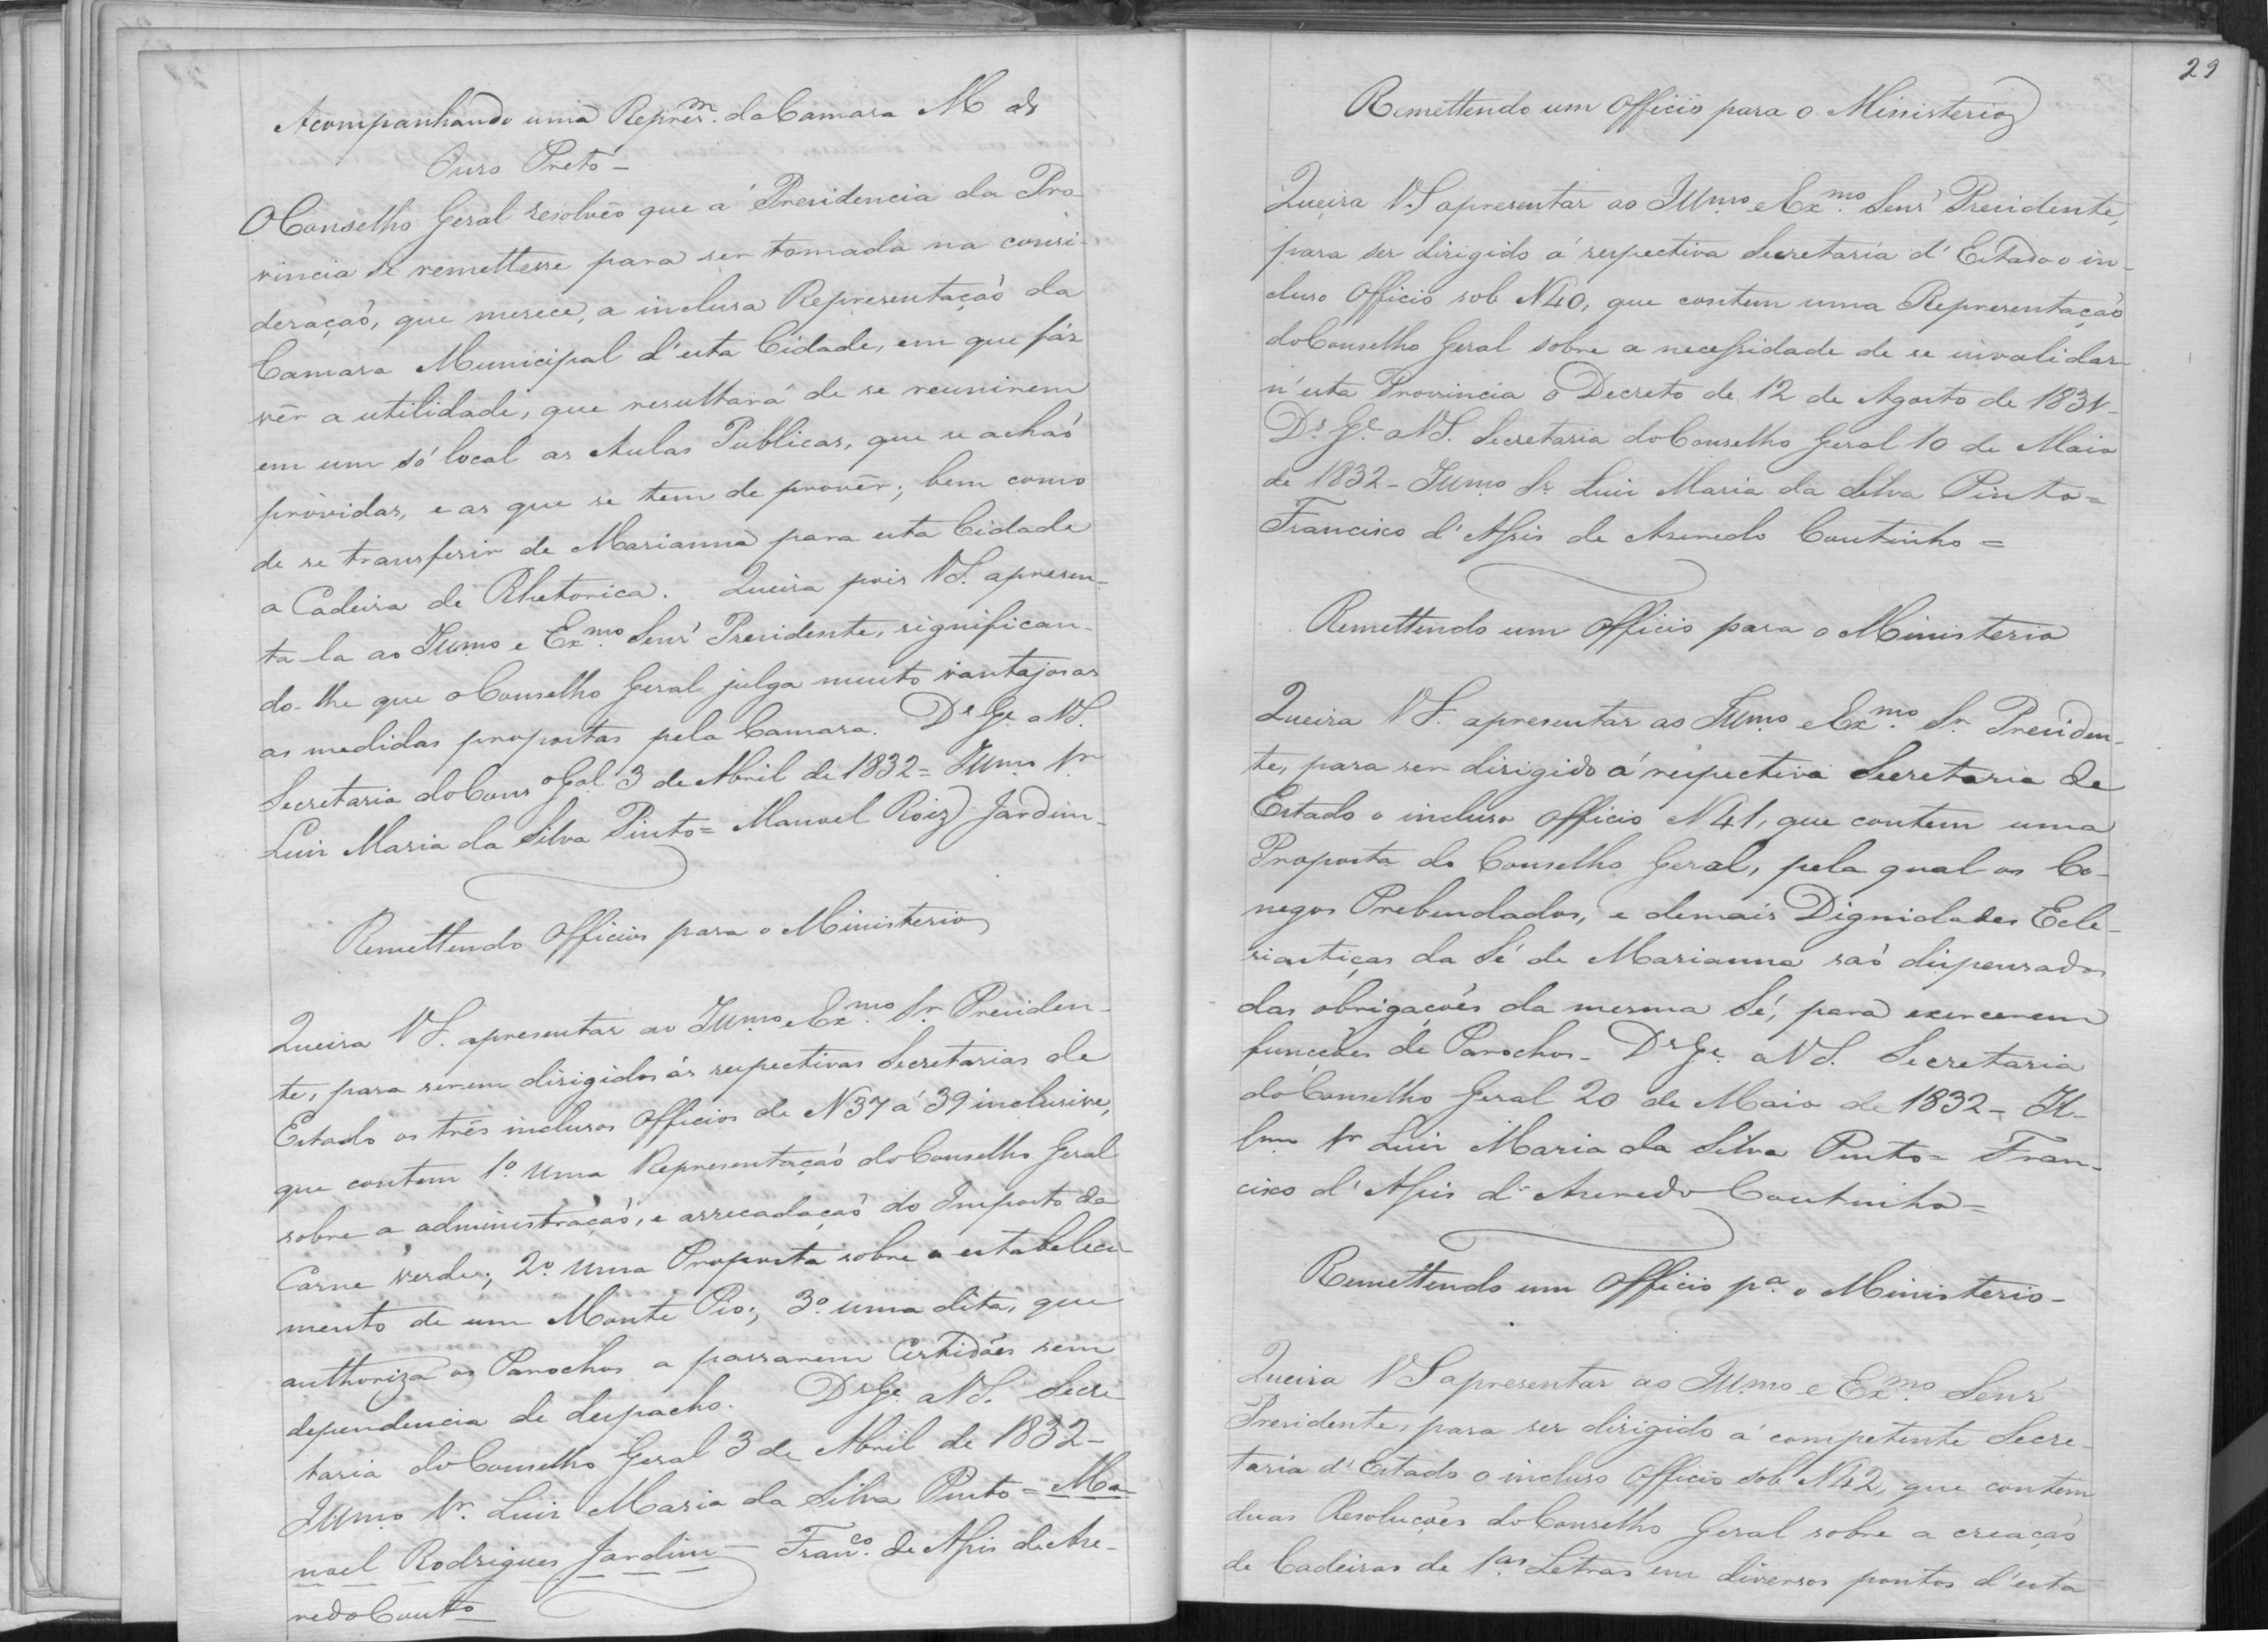 Acompanhando uma Represm. da Camara M de
Ouro Preto -
O Conselho Geral resolveo que á Presidencia da Pro
vincia se remettesse para ser tomada na consi-
deração, que merece, a inclusa Representação da
Camara Municipal d'esta Cidade, em que fáz
vêr a utilidade, que resultará de se reunirem
em um só local as Aulas Publicas, que se achaõ
próvidas, e as que se tem de provêr; bem como
de se transferir de Marianna para esta Cidade
a Cadeira de Rhetorica. Queira pois V.S. apresen-
ta-la ao Illmo e Exmo. Senr. Presidente, significan-
do-lhe que o Conselho Geral julga muito vantajosas
as medidas propostas pela Camara. Ds. Ge. a V.S.
Secretaria do Conso Gal 3 de Abril de 1832 = Illmo Sr
Luis Maria da Silva Pinto = Manoel Roiz Jardim-
Remettendo Officios para o Ministerio
Queira V.S. apresentar ao Illmo e Exmo. Sr. Presiden-
te, para serem dirigidos ás respectivas Secretarias de
Estado os três inclusos Officios de N 37 á 39 inclusive,
que contem 1º. uma Representação do Conselho Geral
sobre a administração, e arrecadação do Imposto da
Carne verde; 2º. uma Proposta sobre o estabeleci-
mento de um Monte Pio; 3º. uma dita, que
authoriza os Parochos a passarem Certidões sem
dependencia de despacho. Ds. Ge. a V.S. Secre
taria do Conselho Geral 3 de Abril de 1832 -
Illmo Sr. Luis Maria da Silva Pinto = Ma-
noel Rodrigues Jardim - Franco. de Assis de Aze-
vedo Couto
29
Remettendo um Officio para o Ministerio
Queira V.S apresentar ao Illmo e Exmo. Senr. Presidente,
para ser dirigido á respectiva Secretaria d'Estado o in-
cluso Officio sob N 40, que contem uma Representação
do Conselho Geral sobre a necessidade de se invalidar
n'esta Provincia o Decreto de 12 de Agosto de 1831-
Ds. Ge. a V.S. Secretaria do Conselho Geral 10 de Maio
de 1832 - Illmo Sr. Luis Maria da Silva Pinto =
Francisco d'Assis de Azevedo Coutinho =
Remettendo um Officio para o Ministerio
Queira V.S. apresentar ao Illmo e Exmo. Sr. Presiden-
te, para ser dirigido á respectiva Secretaria de
Estado o incluso Officio N 41, que contem uma
Proposta do Conselho Geral, pela qual os Co-
negos Prebendados, e demais Dignidades Ecle-
siasticas da Sé de Marianna saõ dispensados
das obrigações da mesma Sé, para exercerem
funcções de Parochos - Ds. Ge. a V.S. Secretaria
do Conselho Geral 20 de Maio de 1832 - Il-
lmo Sr Luis Maria da Silva Pinto = Fran-
cisco d'Assis d'Azevedo Coutinho =
Remettendo um Officio pa. o Ministerio -
Queira V.S apresentar ao Illmo e Exmo. Senr.
Presidente, para ser dirigido á competente Secre-
taria d'Estado o incluso Officio sob N 42, que contem
duas Resoluções do Conselho Geral sobre a creação
de Cadeiras de 1as. Letras em diversos pontos d'esta